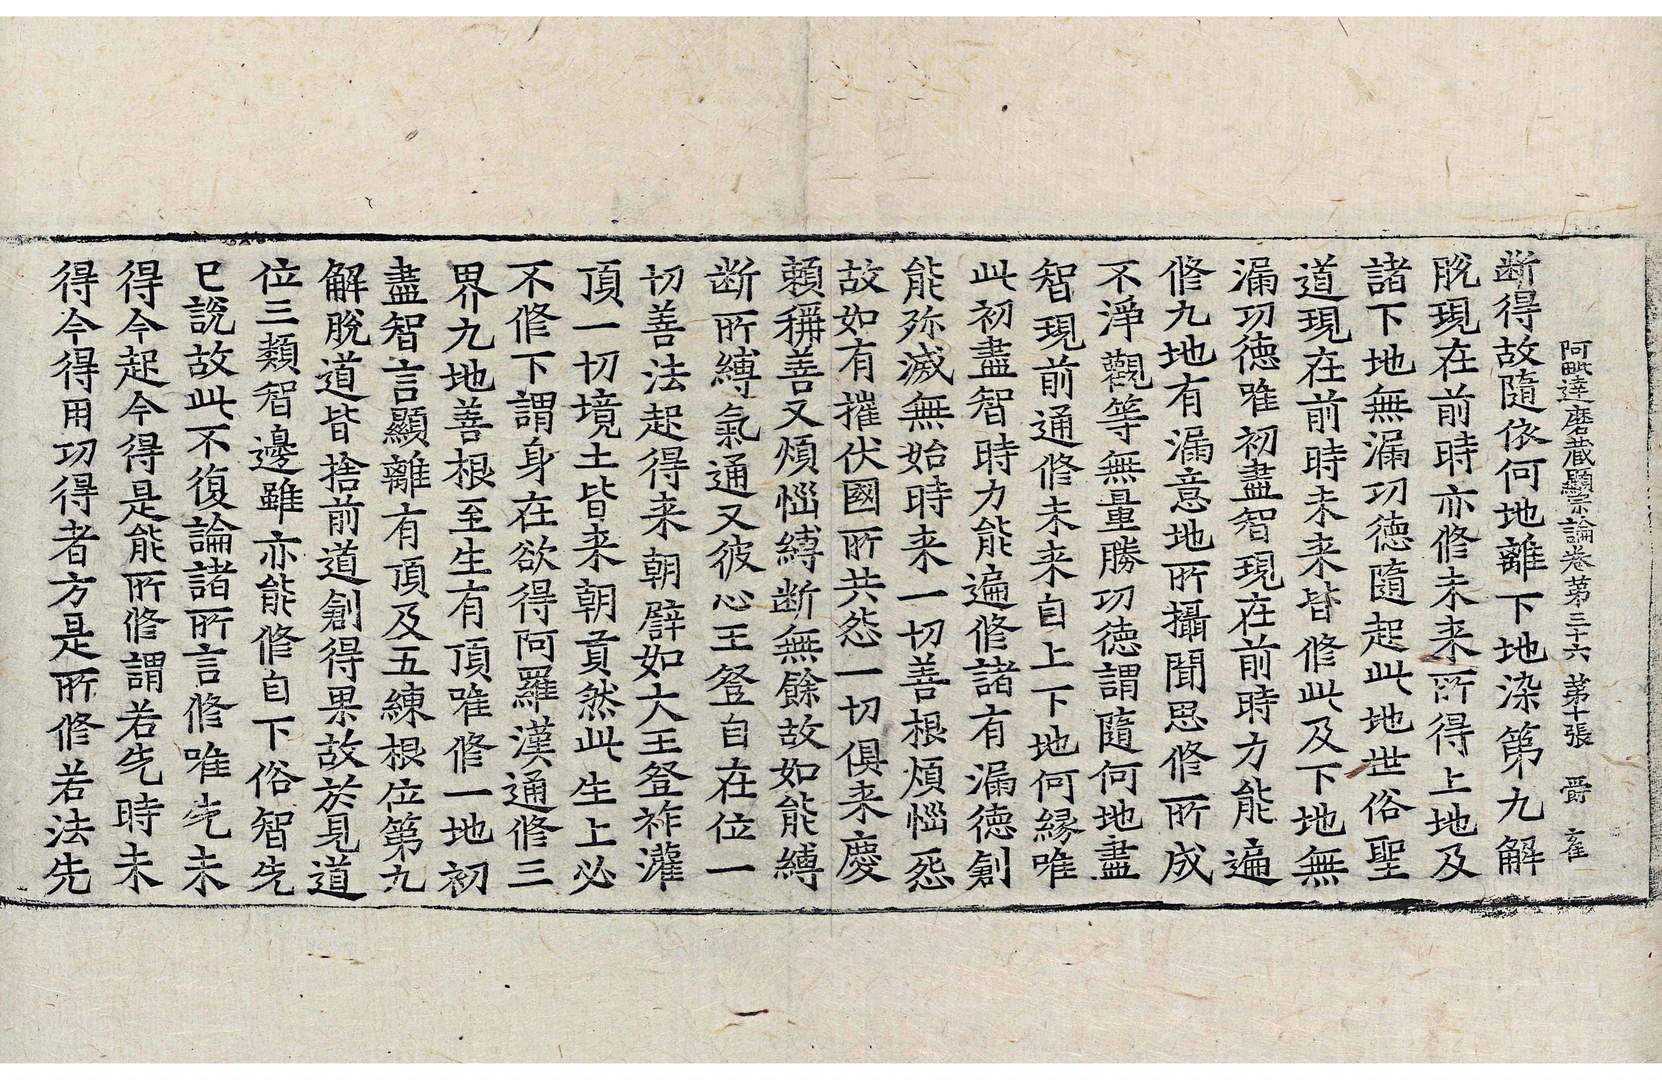 阿毗達磨藏顯宗論卷第三十六 第十張 爵
断得故隨依何地離下地染第九解
脫現在前時亦修未来所得上地及
諸下地無漏功德隨起此地世俗聖
道現在前時未来皆修此及下地無
漏功德唯初盡智現在前時方能遍
修九地有漏意地所攝聞思修所成
不淨觀等無量勝功德謂隨何地盡
智現前通修未来自上下地何緣唯
此初盡智時力能遍修諸有漏德創
能殄滅無始時来一切善根煩惱怨
故如有摧伏國所共怨一切俱来慶
賴稱善又煩惱縛断無餘故如能縛
断所縛氣通又彼心王登自在位一
切善法起得来朝譬如大王登祚灌
頂一切境土皆来朝貢然此生上必
不修下謂身在欲得阿羅漢通修三
界九地善根至生有頂唯修一地初
盡智言顯離有頂及五練根位第九
解脫道皆捨前道創得果故於見道
位三類智邊雖亦能修自下俗智先
已說故此不復論諸所言修唯先未
得今起今得是能所修謂若先時未
得今得用功得者方是所修若法先